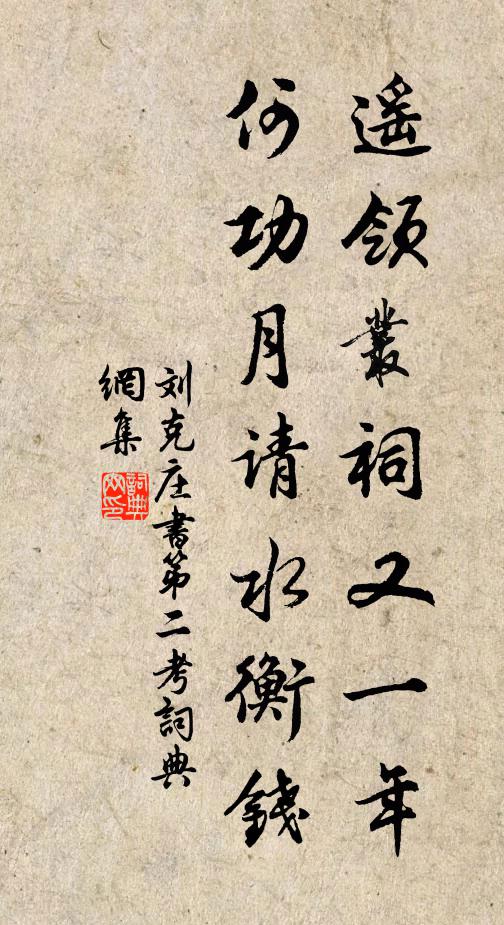 遥領叢祠又一年
何功月请水衡錢
刘克庄書第二考詞典
網集
詞典網印